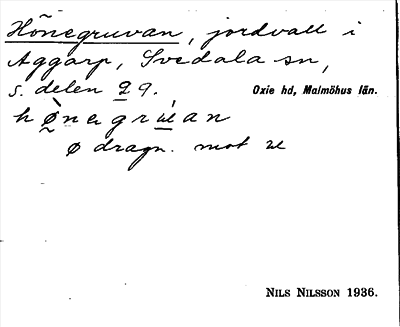 Hönegruvan, jordvall i
Aggarp, Svedala sn,
s. delen 29.
Oxie hd, Malmöhus län.
hø̀negrúan
ø dragn. mot æ
NILS NILSSON 1936.